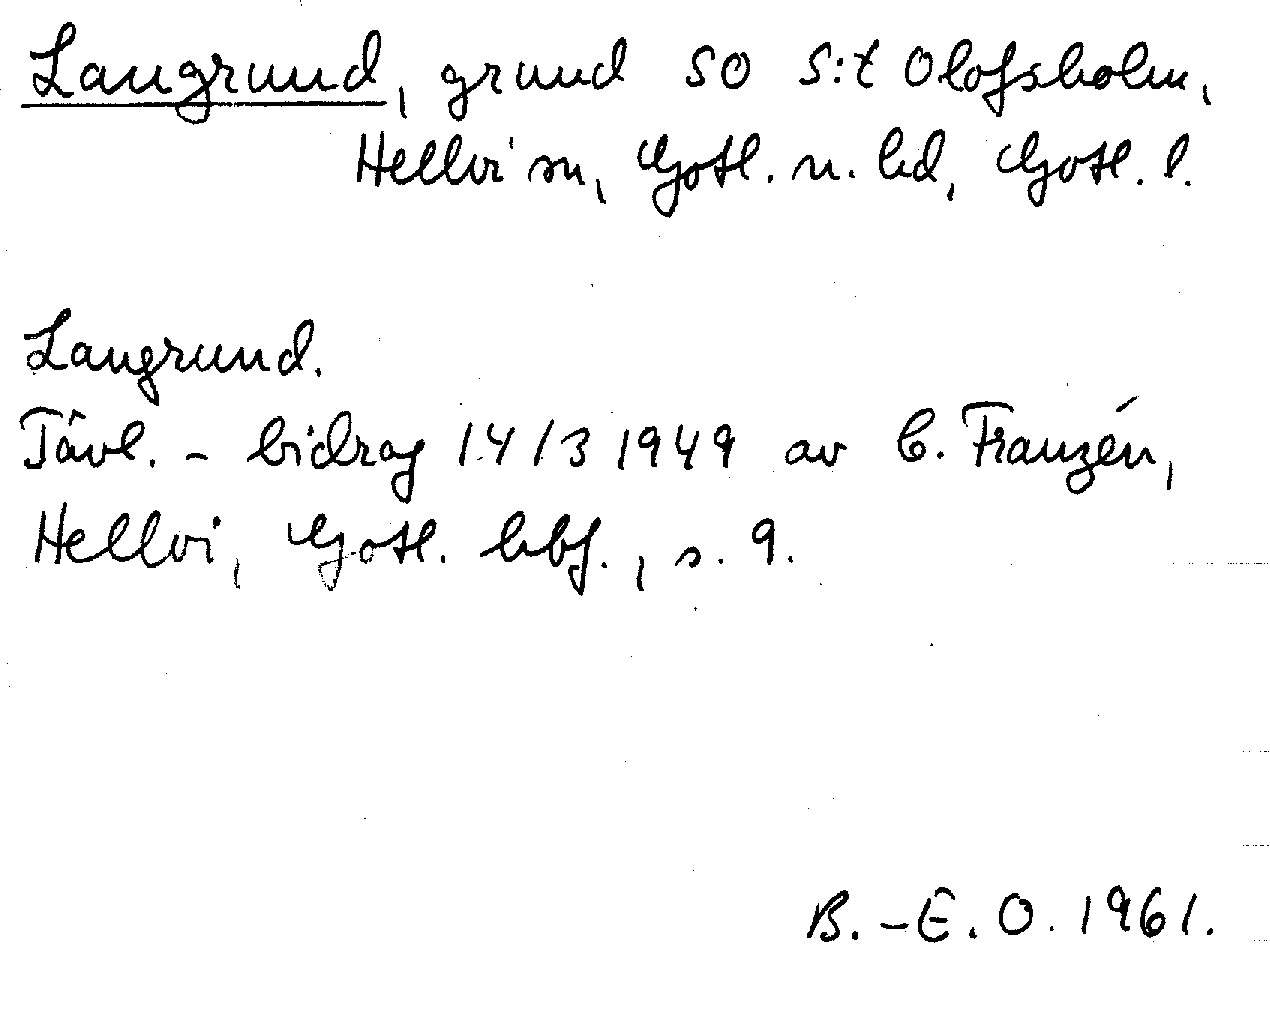 Langrund, grund SO S:t Olofsholm,
Hellvi sn, Gotl. n. hd, Gotl. l.
Langrund.
Tävl. - bidrag 14/3 1949 av C. Franzén,
Hellvi, Gotl. hbf., s. 9.
B.-E. O. 1961.